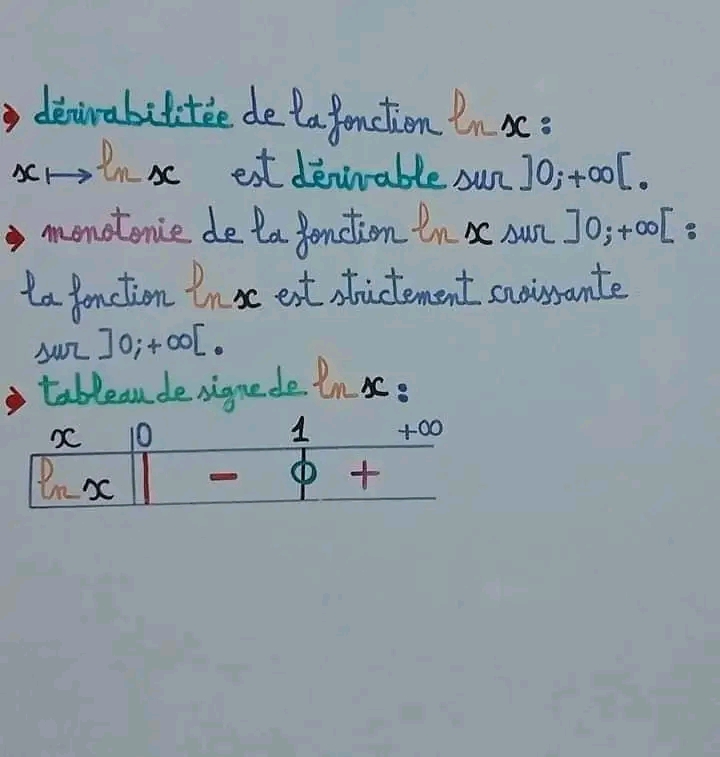 dérivabilitée de la fonction ln x :
x ↦ ln x est dérivable sur ]0;+∞[.
monotonie de la fonction ln x sur ]0;+∞[ :
la fonction ln x est strictement croissante
sur ]0;+∞[.
tableau de signe de ln x :
x 0 1 +∞
ln x - 0 +